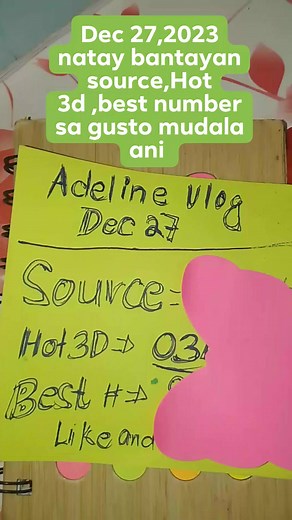 Dec 27,2023
natay bantayan
source,Hot
3d ,best number
sa gusto mudala
ani
Adeline Vlog
Dec 27
Source=
Hot3D⇒ 03
Best #⇒
Like and